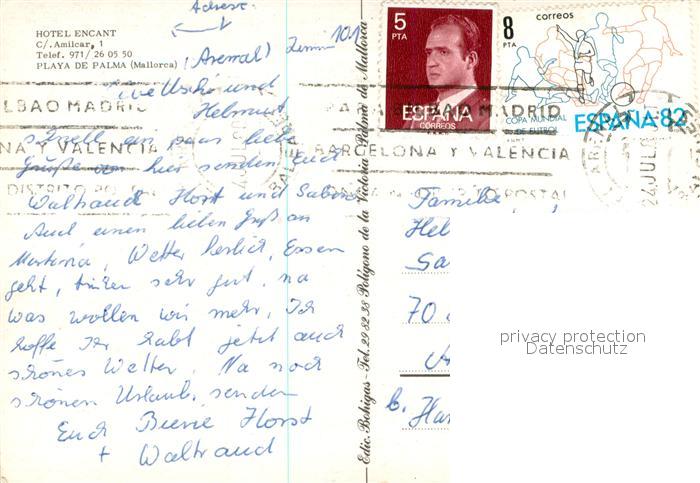 Adresse.
HOTEL ENCANT
C/. Amilcar, 1
Telef. 971/26 05 50
PLAYA DE PALMA (Mallorca)
(Arenal) Zimmer 101
Liebe Uschi und
Helmut
schnell ein paar liebe
Grüße von hier senden Euch
Waltraud Horst und Sabine
Auch einen lieben Gruß an
Martina, Wetter herlich, Essen
geht, trinken sehr gut, na
was wollen wir mehr, Ich
hoffe Ihr habt jetzt auch
schönes Wetter. Na noch
schönen Urlaub. senden
Euch Horst
+ Waltraud
Edic. Bohigas - Tel. 29 82 38 Polígono de la Victoria - Palma de Mallorca
5
PTA
ESPAÑA
CORREOS
8
PTA
correos
COPA MUNDIAL
DE FUTBOL
ESPAÑA 82
BILBAO MADRID
NA Y VALENCIA
DISTRITO POSTAL
BILBAO MADRID
BARCELONA Y VALENCIA
POSTAL
24 JUL
Familie
Hel
Sa
70
b. Han
privacy protection
Datenschutz